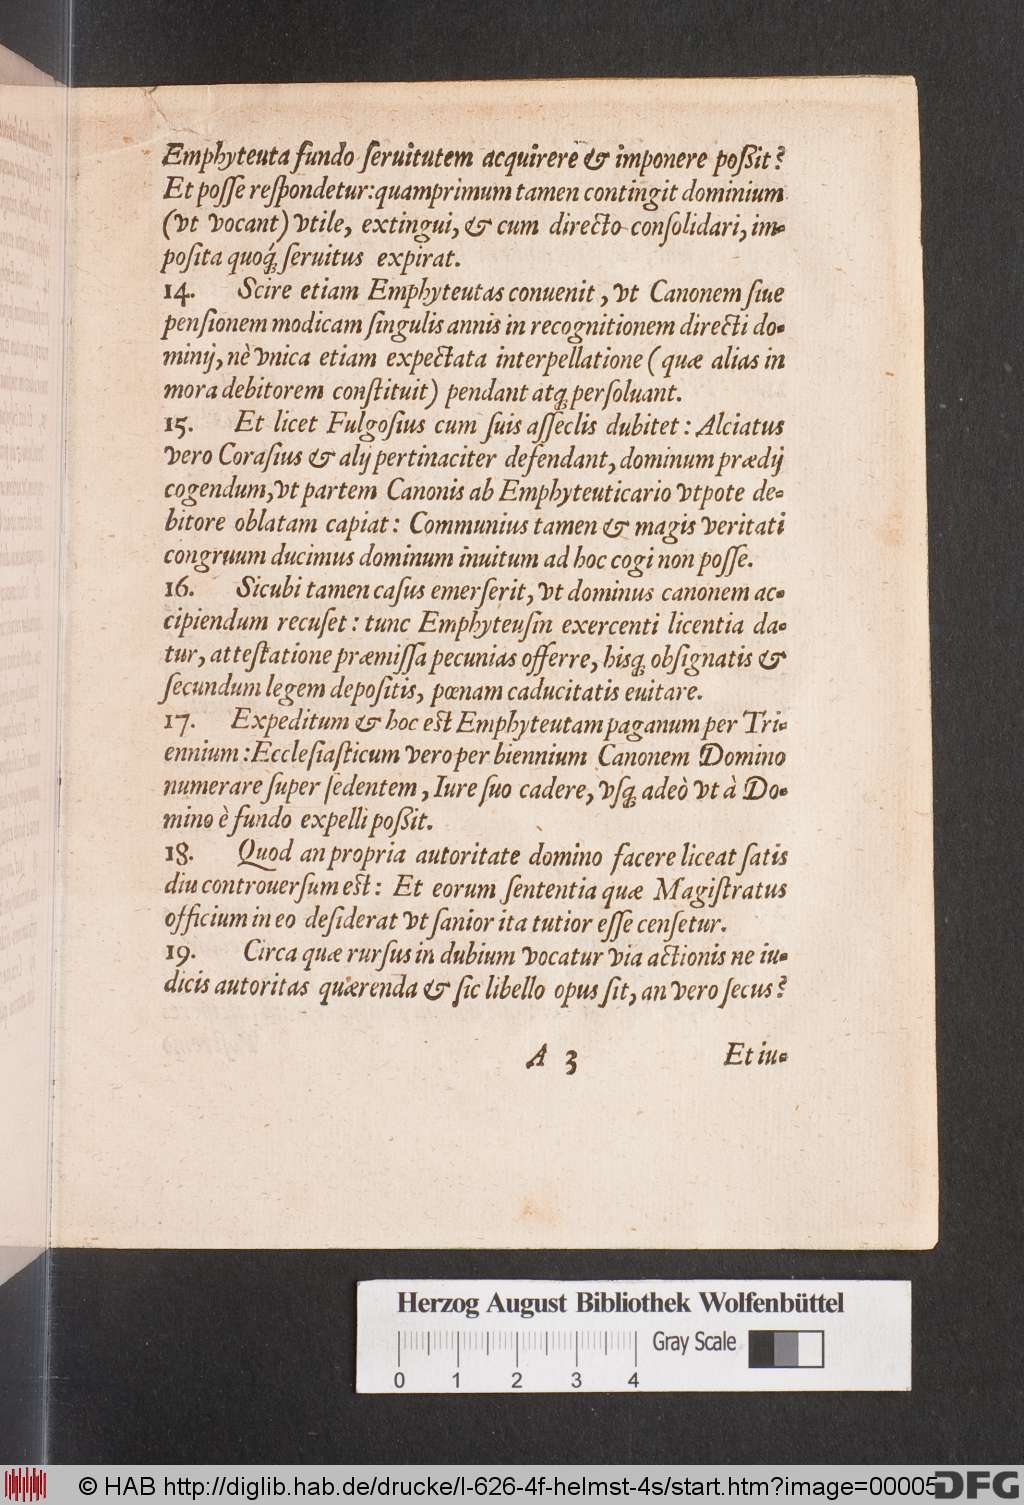 Emphyteuta fundo ſeruitutem acquirere & imponere poßit?
Et poſſe reſpondetur: quamprimum tamen contingit dominium
(vt vocant) vtile, extingui, & cum directo conſolidari, im-
poſita quoq́; ſeruitus expirat.
14. Scire etiam Emphyteutas conuenit, vt Canonem ſiue
penſionem modicam ſingulis annis in recognitionem directi do-
minij, nè vnica etiam expectata interpellatione (quæ alias in
mora debitorem conſtituit) pendant atq; perſoluant.
15. Et licet Fulgoſius cum ſuis aſſeclis dubitet: Alciatus
vero Coraſius & alij pertinaciter defendant, dominum prædij
cogendum, vt partem Canonis ab Emphyteuticario vtpote de-
bitore oblatam capiat: Communius tamen & magis veritati
congruum ducimus dominum inuitum ad hoc cogi non poſſe.
16. Sicubi tamen caſus emerſerit, vt dominus canonem ac-
cipiendum recuſet: tunc Emphyteuſin exercenti licentia da-
tur, atteſtatione præmiſſa pecunias offerre, hisq; obſignatis &
ſecundum legem depoſitis, pœnam caducitatis euitare.
17. Expeditum & hoc eſt Emphyteutam paganum per Tri-
ennium: Eccleſiaſticum vero per biennium Canonem Domino
numerare ſuper ſedentem, Iure ſuo cadere, vſq; adeò vt à Do-
mino è fundo expelli poßit.
18. Quod an propria autoritate domino facere liceat ſatis
diu controuerſum eſt: Et eorum ſententia quæ Magiſtratus
officium in eo deſiderat vt ſanior ita tutior eſſe cenſetur.
19. Circa quæ rurſus in dubium vocatur via actionis ne iu-
dicis autoritas quærenda & ſic libello opus ſit, an vero ſecus?
A 3 Et iu-
Herzog August Bibliothek Wolfenbüttel
Gray Scale
0 1 2 3 4
© HAB http://diglib.hab.de/drucke/l-626-4f-helmst-4s/start.htm?image=00005
DFG